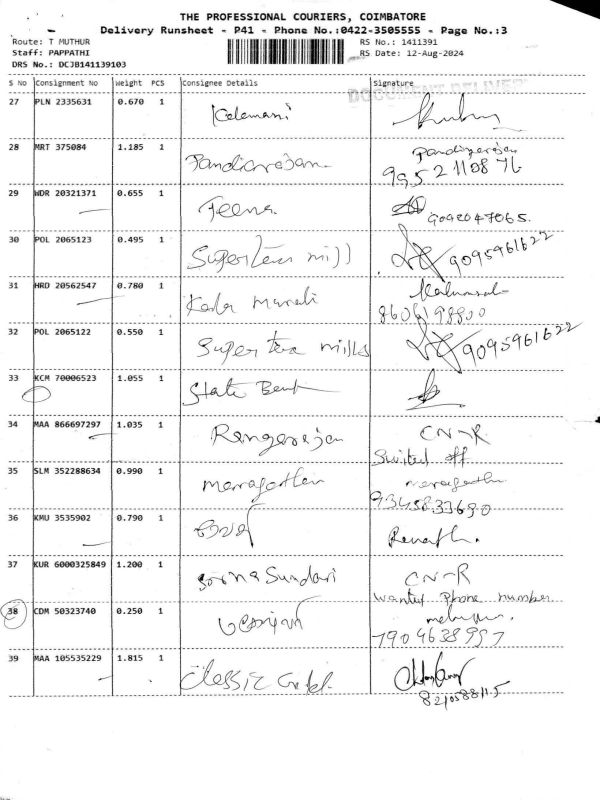 THE PROFESSIONAL COURIERS, COIMBATORE
Delivery Runsheet - P41 - Phone No.:0422-3505555 - Page No.:3
Route: T MUTHUR RS No.: 1411391
Staff: PAPPATHI RS Date: 12-Aug-2024
DRS No.: DCJB141139103
S No Consignment No Weight PCS Consignee Details Signature
27 PLN 2335631 0.670 1 Kalamani
28 MRT 375084 1.185 1 Pandiarajan Pandiyarajan
9952110876
29 WDR 20321371 0.655 1 Teena 9092047065.
30 POL 2065123 0.495 1 Super Tex mill 9095961622
31 HRD 20562547 0.780 1
8606198800
32 POL 2065122 0.550 1 Super tex mills 9095961622
33 KCM 70006523 1.055 1 State Bank
34 MAA 866697297 1.035 1 Rangarajan CN-R
Swited off
35 SLM 352288634 0.990 1
9345833690
36 KMU 3535902 0.790 1
37 KUR 6000325849 1.200 1 Sorna Sundari CN-R
wanted Phone number
38 CDM 50323740 0.250 1
7904638997
39 MAA 105535229 1.815 1 Classic